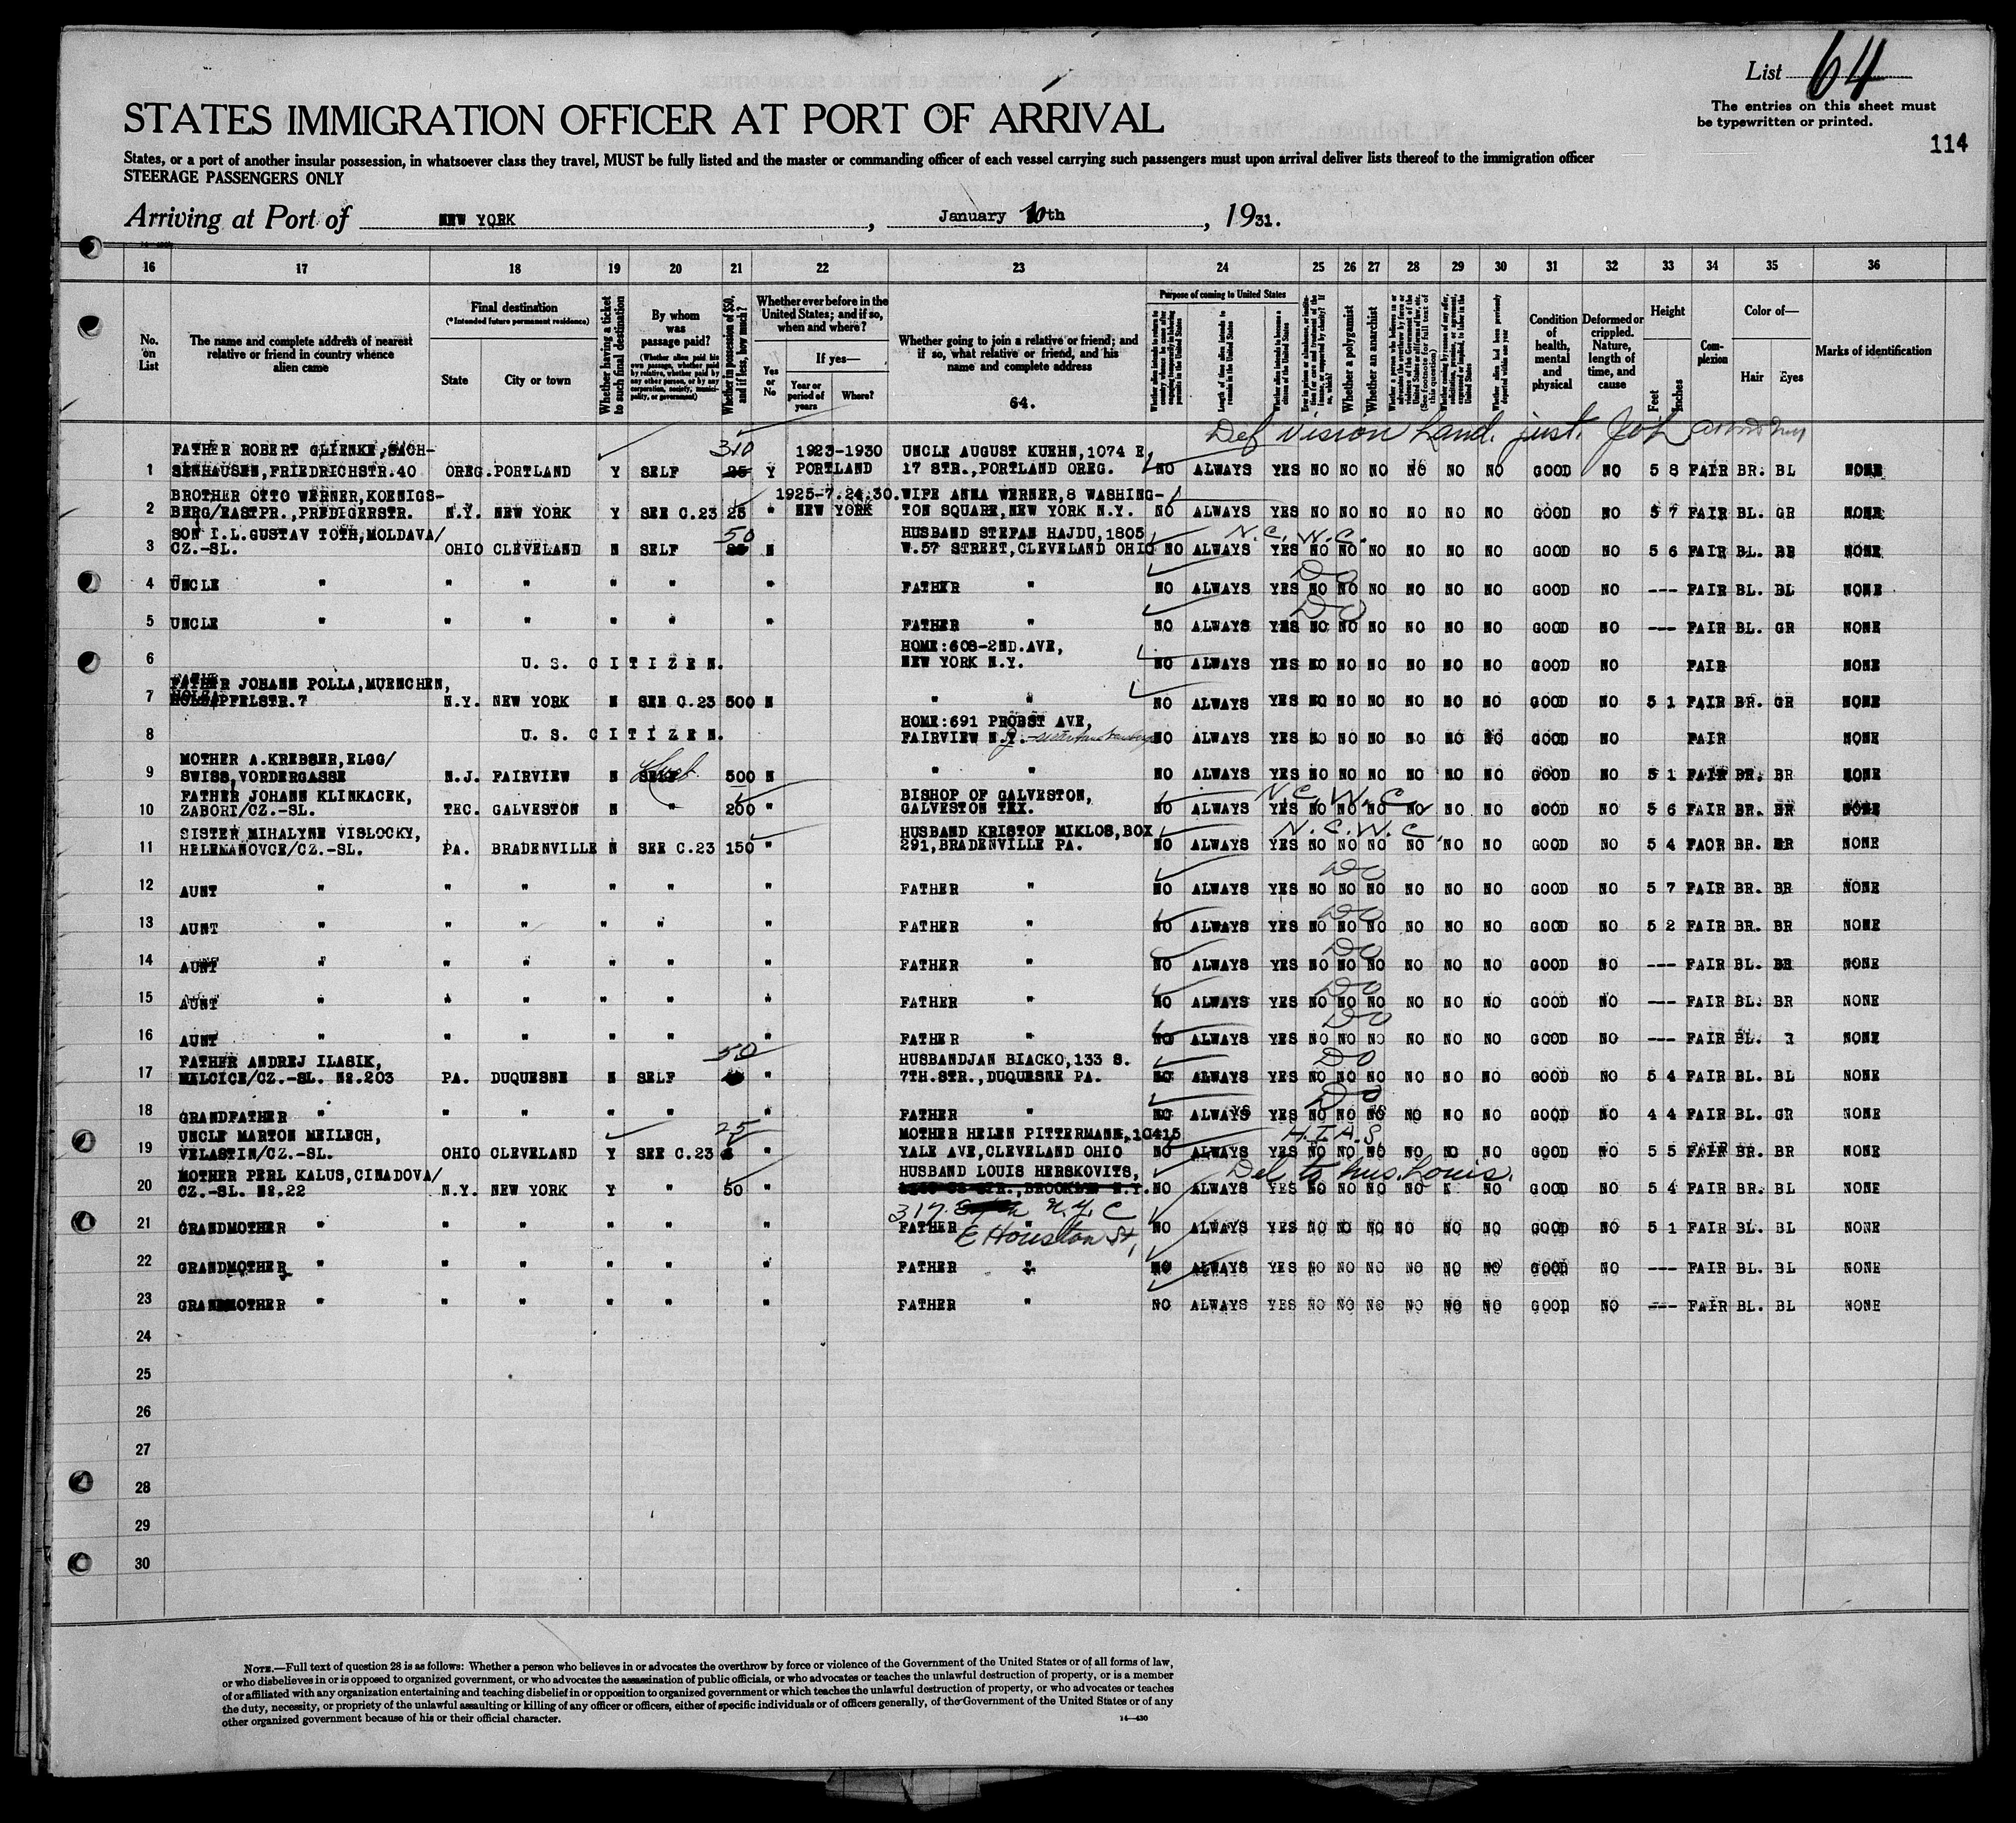 List 64
The entries on this sheet must
be typewritten or printed.
114
STATES IMMIGRATION OFFICER AT PORT OF ARRIVAL
States, or a port of another insular possession, in whatsoever class they travel, MUST be fully listed and the master or commanding officer of each vessel carrying such passengers must upon arrival deliver lists thereof to the immigration officer
STEERAGE PASSENGERS ONLY
Arriving at Port of NEW YORK, January 10th, 1931.
16 17 18 19 20 21 22 23 24 25 26 27 28 29 30 31 32 33 34 35 36
No. on List
The name and complete address of nearest relative or friend in country whence alien came
Final destination
(*Intended future permanent residence)
State
City or town
Whether having a ticket to such final destination
By whom was passage paid?
(Whether alien paid his own passage, whether paid by relative, whether paid by any other person, or by any corporation, society, municipality, or government)
Whether in possession of $50, and if less, how much?
Whether ever before in the United States; and if so, when and where?
Yes or No
If yes—
Year or period of years
Where?
Whether going to join a relative or friend; and if so, what relative or friend, and his name and complete address
64.
Purpose of coming to United States
Length of time alien intends to remain in the United States
Whether alien intends to become a citizen of the United States
Whether a polygamist
Whether an anarchist
Whether alien had been previously deported within one year
Condition of health, mental and physical
Deformed or crippled. Nature, length of time, and cause
Height
Feet
Inches
Complexion
Color of—
Hair
Eyes
Marks of identification
FATHER ROBERT GLIENKE, SACH- 310 1923-1930 UNCLE AUGUST KUEHN, 1074 E,
1 SENHAUSEN, FRIEDRICHSTR.40 OREG. PORTLAND Y SELF 25 Y PORTLAND 17 STR., PORTLAND OREG. NO ALWAYS YES NO NO NO NO NO NO GOOD NO 5 8 FAIR BR. BL NONE
BROTHER OTTO WERNER, KOENIGS- 1925-7.24.30. WIFE ANNA WERNER, 8 WASHING-
2 BERG/EASTPR., PREDIGERSTR. N.Y. NEW YORK Y SEE C.23 25 " NEW YORK TON SQUARE, NEW YORK N.Y. NO ALWAYS YES NO NO NO NO NO NO GOOD NO 5 7 FAIR BL. GR NONE
SON I.L. GUSTAV TOTH, MOLDAVA/ 50 HUSBAND STEFAN HAJDU, 1805 N.C.W.C.
3 CZ.-SL. OHIO CLEVELAND N SELF N W.57 STREET, CLEVELAND OHIO NO ALWAYS YES NO NO NO NO NO NO GOOD NO 5 6 FAIR BL. BR NONE
Do
4 UNCLE " " " " " " FATHER " NO ALWAYS YES NO NO NO NO NO NO GOOD NO --- FAIR BL. BL NONE
Do
5 UNCLE " " " " " " FATHER " NO ALWAYS YES NO NO NO NO NO NO GOOD NO --- FAIR BL. GR NONE
HOME: 608-2ND. AVE,
6 U. S. CITIZEN. NEW YORK N.Y. NO ALWAYS YES NO NO NO NO NO NO GOOD NO FAIR NONE
FATHER JOHANN POLLA, MUENCHEN,
7 HOLZAPFELSTR.7 N.Y. NEW YORK N SEE C.23 500 N " " NO ALWAYS YES NO NO NO NO NO NO GOOD NO 5 1 FAIR BR. GR NONE
HOME: 691 PROBST AVE,
8 U. S. CITIZEN. FAIRVIEW N.J. NO ALWAYS YES NO NO NO NO NO NO GOOD NO FAIR NONE
MOTHER A. KREBSER, ELGG/
9 SWISS, VORDERGASSE N.J. FAIRVIEW N SELF 500 N " " NO ALWAYS YES NO NO NO NO NO NO GOOD NO 5 1 FAIR BR. BR NONE
FATHER JOHANN KLINKACEK, BISHOP OF GALVESTON, N.C.W.C.
10 ZABORI/CZ.-SL. TEC. GALVESTON N " 200 " GALVESTON TEX. NO ALWAYS YES NO NO NO NO NO NO GOOD NO 5 6 FAIR BR. BR NONE
SISTER MIHALYNE VISLOCKY, HUSBAND KRISTOF MIKLOS, BOX N.C.W.C.
11 HELEMANOVCE/CZ.-SL. PA. BRADENVILLE N SEE C.23 150 " 291, BRADENVILLE PA. NO ALWAYS YES NO NO NO NO NO NO GOOD NO 5 4 FAOR BR. BR NONE
Do
12 AUNT " " " " " " FATHER " NO ALWAYS YES NO NO NO NO NO NO GOOD NO 5 7 FAIR BR. BR NONE
Do
13 AUNT " " " " " " FATHER " NO ALWAYS YES NO NO NO NO NO NO GOOD NO 5 2 FAIR BR. BR NONE
Do
14 AUNT " " " " " " FATHER " NO ALWAYS YES NO NO NO NO NO NO GOOD NO --- FAIR BL. BR NONE
Do
15 AUNT " " " " " " FATHER " NO ALWAYS YES NO NO NO NO NO NO GOOD NO --- FAIR BL. BR NONE
Do
16 AUNT " " " " " " FATHER " NO ALWAYS YES NO NO NO NO NO NO GOOD NO --- FAIR BL. NONE
FATHER ANDREJ ILASIK, 50 HUSBAND JAN BIACKO, 133 S. Do
17 MALCICE/CZ.-SL. No.203 PA. DUQUESNE N SELF " 7TH.STR., DUQUESNE PA. NO ALWAYS YES NO NO NO NO NO NO GOOD NO 5 4 FAIR BL. BL NONE
Do
18 GRANDFATHER " " " " " " FATHER " NO ALWAYS YES NO NO NO NO NO NO GOOD NO 4 4 FAIR BL. GR NONE
UNCLE MARTON MEILECH, 25 MOTHER HELEN PITTERMANN, 10415 H.I.A.S.
19 VELASTIN/CZ.-SL. OHIO CLEVELAND Y SEE C.23 " YALE AVE, CLEVELAND OHIO NO ALWAYS YES NO NO NO NO NO NO GOOD NO 5 5 FAIR BR. BR NONE
MOTHER PERL KALUS, CINADOVA/ HUSBAND LOUIS HERSKOVITS, Del to hus. Louis.
20 CZ.-SL. No.22 N.Y. NEW YORK Y " 50 " STR., BROOKLYN N.Y. NO ALWAYS YES NO NO NO NO NO GOOD NO 5 4 FAIR BR. BL NONE
317 N.Y.C
21 GRANDMOTHER " " " " " " FATHER " NO ALWAYS YES NO NO NO NO NO NO GOOD NO 5 1 FAIR BL. BL NONE
E Houston St,
22 GRANDMOTHER " " " " " " FATHER " NO ALWAYS YES NO NO NO NO NO NO GOOD NO --- FAIR BL. BL NONE
23 GRANDMOTHER " " " " " " FATHER " NO ALWAYS YES NO NO NO NO NO NO GOOD NO --- FAIR BL. BL NONE
24
25
26
27
28
29
30
NOTE.—Full text of question 28 is as follows: Whether a person who believes in or advocates the overthrow by force or violence of the Government of the United States or of all forms of law,
or who disbelieves in or is opposed to organized government, or who advocates the assassination of public officials, or who advocates or teaches the unlawful destruction of property, or is a member
of or affiliated with any organization entertaining and teaching disbelief in or opposition to organized government or which teaches the unlawful destruction of property, or who advocates or teaches
the duty, necessity, or propriety of the unlawful assaulting or killing of any officer or officers, either of specific individuals or of officers generally, of the Government of the United States or of any
other organized government because of his or their official character.
14—430